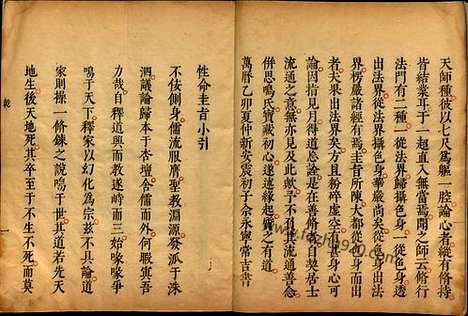 天師種種彼以七尺為軀一腔論心者縱有脩持
皆結業耳于一超直入無當焉聞之師云脩行
法門有二種一從法界歸攝色身一從色身透
出法界從法界攝色身華嚴尚矣從色身出法
界楞嚴諸經有焉圭旨所陳大都從色身而出
者夫果出法界方且粉碎虛空有甚身心可
論因指見月得道忘詮是在善脩者自契居士
流通之意無亦見及此歟予不禁其流通善念
併思鳴氏寶藏初心遂述緣起質之有道
萬曆乙卯夏仲新安震初子余永寧常吉書
性命圭旨小引
不佞側身儒流服膺聖教淵源發派于洙
泗議論歸本于杏壇舍儒而外何暇寘吾
力哉自釋道興而教遂峙而三始喙喙爭
鳴于天下釋家以幻化為宗茲不具論道
家則操一脩鍊之說鳴于世其道若先天
地生後天地死其卒至于不生不死而莫
乾
一